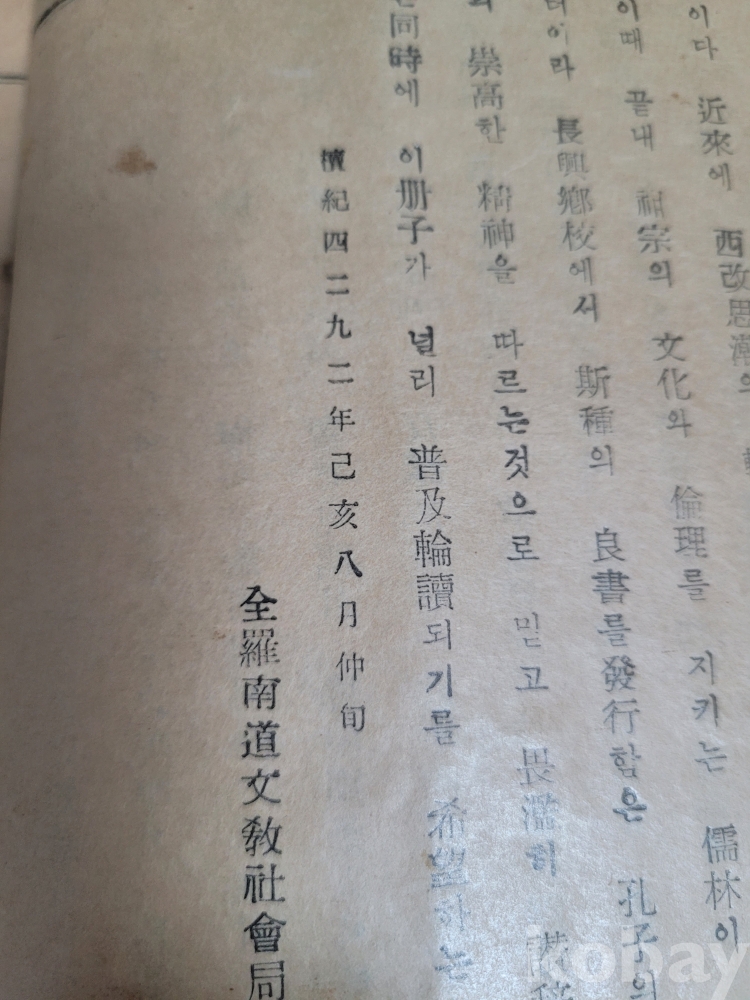 이다 近來에 西改思潮의
이때 끝내 祖宗의 文化와 倫理를 지키는 儒林이
이라 長興鄕校에서 斯種의 良書를 發行함은 孔子의
崇高한 精神을 따르는것으로 믿고 畏濫히
同時에 이册子가 널리 普及輪讀되기를 希望하는
檀紀四二九二年己亥八月仲旬
全羅南道文敎社會局
kobay